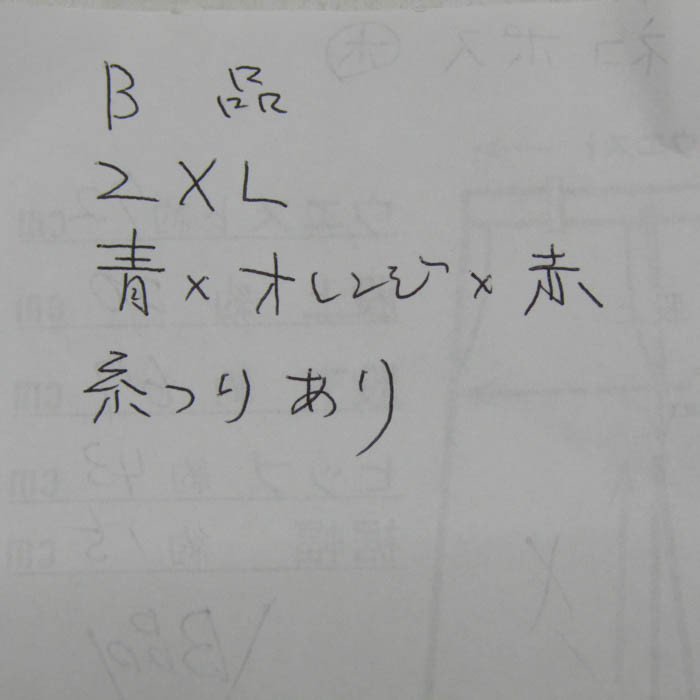 B 品
2XL
青×オレンジ×赤
糸つりあり